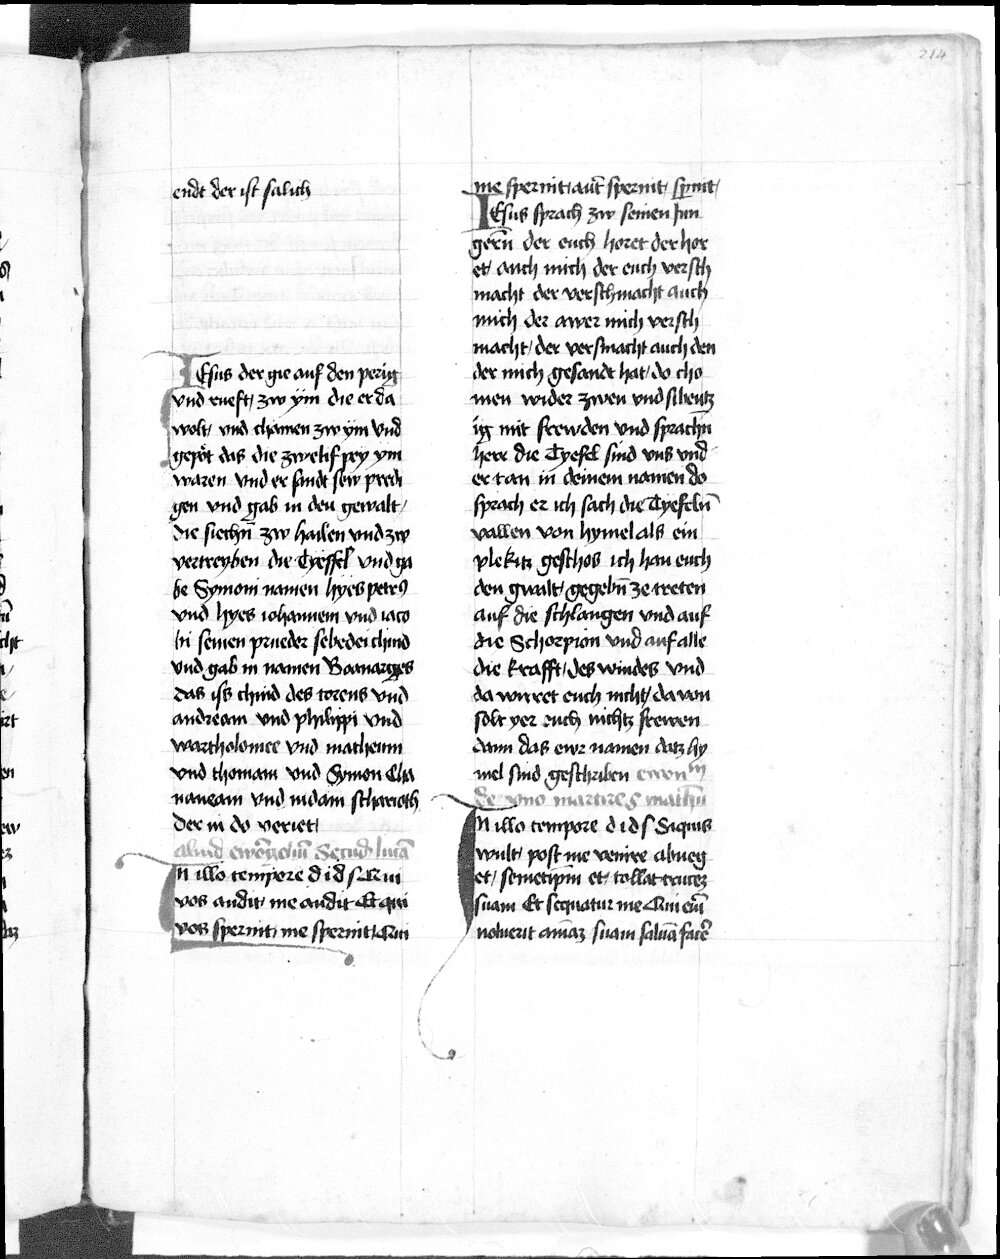 214
endt der ist salich
IEsus der gie auf den perig
vnd rueft zw ym die er da
wolt vnd chamen zw ym vnd
gepot das die zwelif pey ym
waren vnd er sandt sew predi
gen vnd gab in den gewalt
die siechn̄ zw hailen vnd zw
vertreyben die Tyeffel vnd ga
be Symoni namen hyes petrꝰ
vnd hyes iohannem vnd iaco
bi seinen prueder sebedei chind
vnd gab in namen Boanarges
das iss chind des torens vnd
andream vnd philippi vnd
wartholomee vnd matheum
vnd thomam vnd Symon Cha
naneam vnd iudam scharioth
der in do veriet
aliud ewāgeliū Secūdū lucā
In illo tempore d i d s Qui
vos audit me audit Et qui
vos spernit me spernit Qui
me spernit aūt spernit spnit
IEsus sprach zw seinen Jun
gern̄ der euch horet der hor
et auch mich der euch versch
macht der verschmacht auch
mich der awer mich versch
macht der versmacht auch den
der mich gesandt hat do cho
men wider zwen vnd sibentz
ig mit frewden vnd sprachn̄
herr die Tyefel sind vns vnd
ertan in deinem namen do
sprach er ich sach die Tyefeln̄
vallen von hymel als ein
plekitz geschos ich han euch
den gwalt gegebn̄ ze treten
auf die schlangen vnd auf
die Schorpion vnd auf alle
die krafft des windes vnd
da wirret euch nicht da von
solt yer euch nichtz frewen
dann das ewr namen datz hy
mel sind geschriben ewonm
de vno martires mathm
In illo tempore d i d s Siquis
wult post me venire abneg
et semetipm̄ et tollat crucez
suam Et sequatur me Qui eni̅
voluerit aīaz suam saluā facē